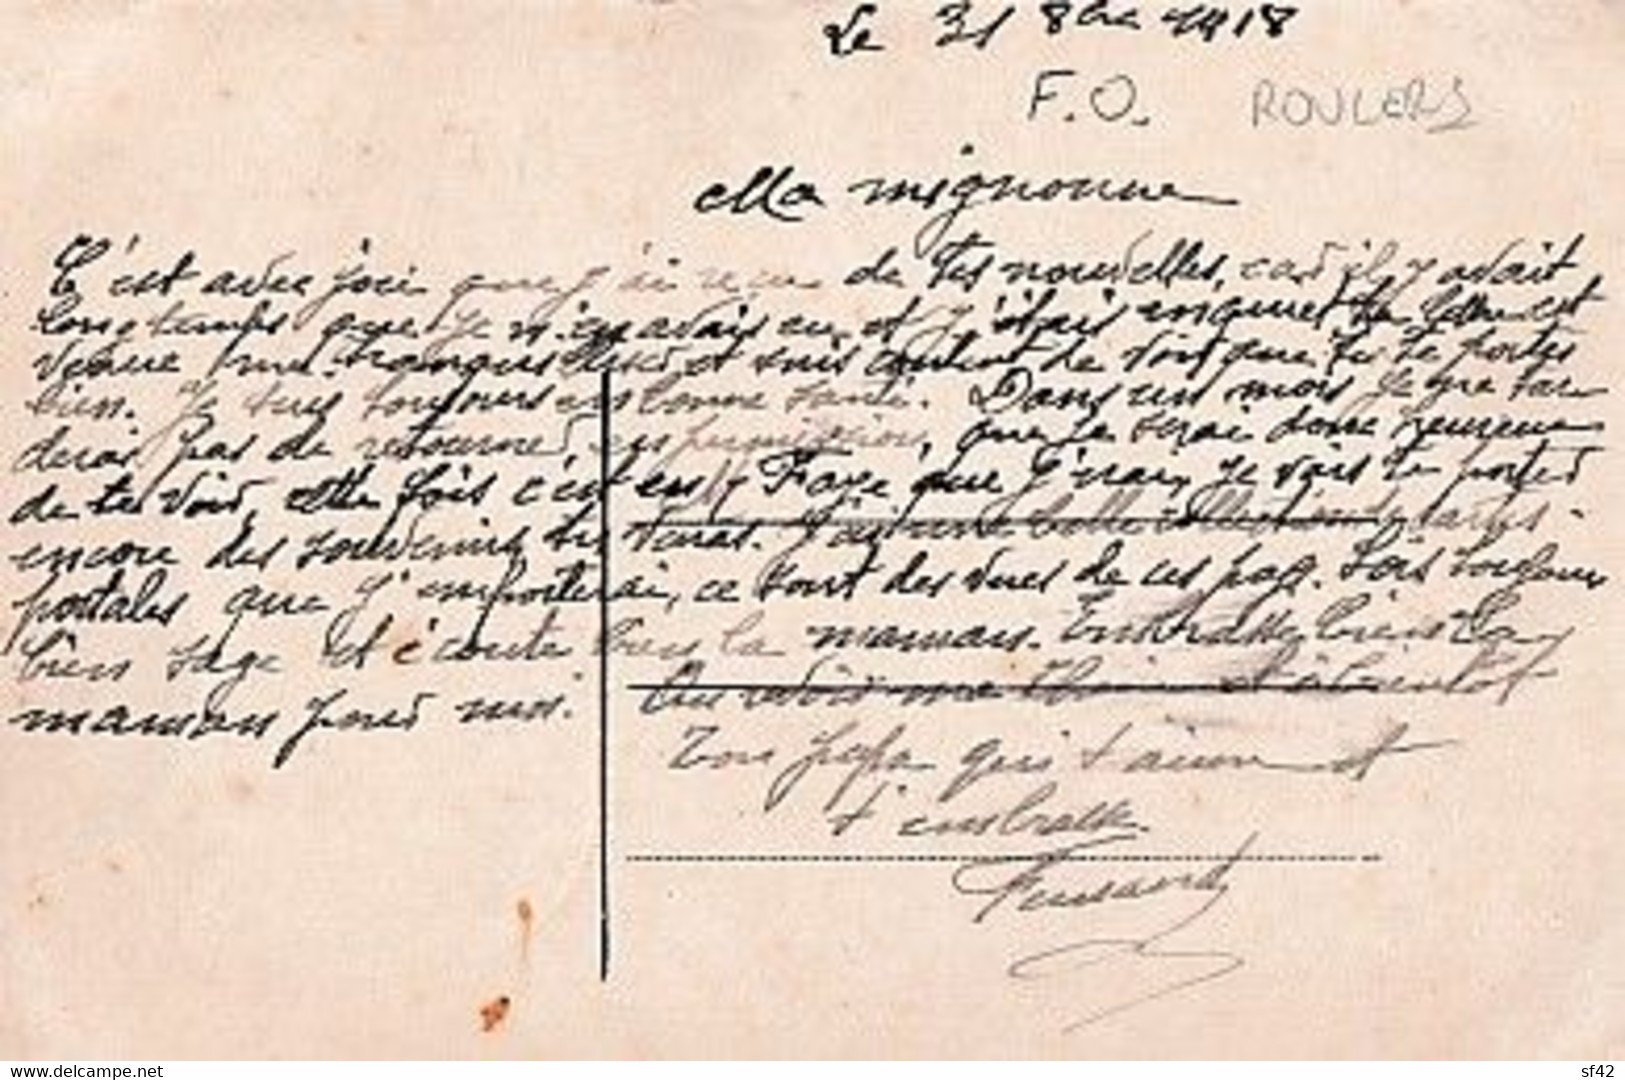 Le 31 8bre 1918
F.O. ROULERS
Ma mignonne
C'est avec joie que j'ai reçu de tes nouvelles, car il y avait
longtemps que je n'en avais eu et j'étais inquiet ta lettre est
venue me tranquilliser et suis content de voir que tu te portes
bien. Je suis toujours en bonne santé. Dans un mois je ne tar
derai pas de retourner en permission, que je serai donc heureux
de te voir, cette fois c'est en que j'irai, je vais te porter
encore des souvenirs tu verras. J'ai une belle collection de cartes
postales que j'emporterai, ce sont des vues de ces pays. Sois toujours
bien sage et écoute bien la maman. Embrasse bien ta
maman pour moi. Au revoir ma et à bientôt
Ton papa qui t'aime et
t'embrasse
www.delcampe.net
sf42